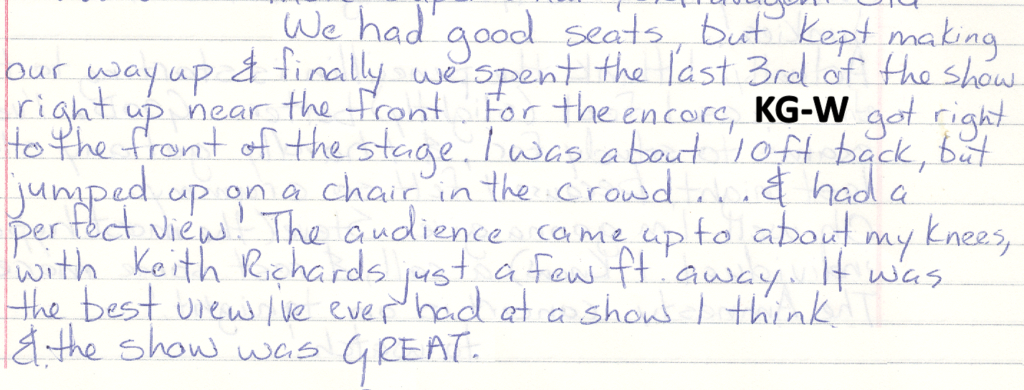 We had good seats, but kept making
our way up & finally we spent the last 3rd of the show
right up near the front. For the encore, KG-W got right
to the front of the stage. I was about 10ft back, but
jumped up on a chair in the crowd ... & had a
perfect view! The audience came up to about my knees,
with Keith Richards just a few ft. away. It was
the best view I've ever had at a show I think
& the show was GREAT.